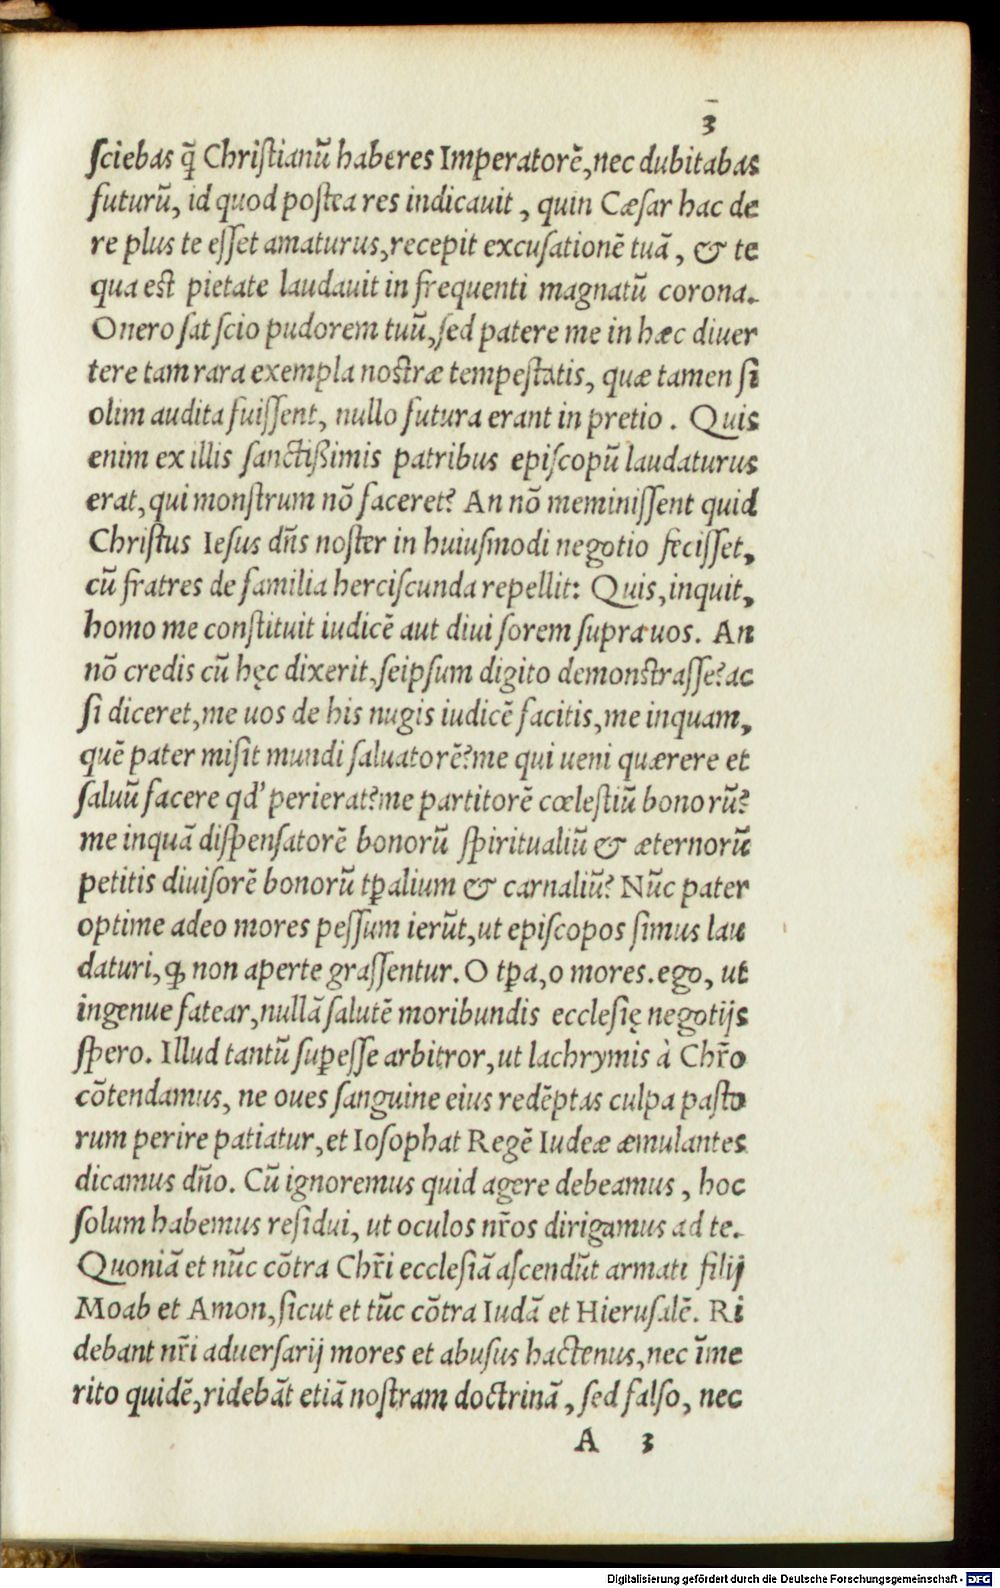 3
sciebas q̃ Christianũ haberes Imperatorẽ, nec dubitabas
futurũ, id quod postea res indicauit, quin Cæsar hac de
re plus te esset amaturus, recepit excusationẽ tuã, & te
qua est pietate laudauit in frequenti magnatũ corona.
Onero sat scio pudorem tuũ, sed patere me in hæc diuer
tere tam rara exempla nostræ tempestatis, quæ tamen si
olim audita fuissent, nullo futura erant in pretio. Quis
enim ex illis sanctißimis patribus episcopũ laudaturus
erat, qui monstrum nõ faceret? An nõ meminissent quid
Christus Iesus dñs noster in huiusmodi negotio fecisset,
cũ fratres de familia herciscunda repellit: Quis, inquit,
homo me constituit iudicẽ aut diui sorem supra uos. An
nõ credis cũ hęc dixerit, seipsum digito demonstrasse? ac
si diceret, me uos de his nugis iudicẽ facitis, me inquam,
quẽ pater misit mundi saluatorẽ? me qui ueni quærere et
saluũ facere qd' perierat? me partitorẽ cœlestiũ bonorũ?
me inquã dispensatorẽ bonorũ spiritualiũ & æternorũ
petitis diuisorẽ bonorũ tꝑalium & carnaliũ? Nũc pater
optime adeo mores pessum ierũt, ut episcopos simus lau
daturi, ꝙ non aperte grassentur. O tꝑa, o mores. ego, ut
ingenue fatear, nullã salutẽ moribundis ecclesię negotijs
spero. Illud tantũ suꝑesse arbitror, ut lachrymis à Chr̃o
cõtendamus, ne oues sanguine eius redẽptas culpa pasto
rum perire patiatur, et Iosophat Regẽ Iudeæ æmulantes
dicamus dño. Cũ ignoremus quid agere debeamus, hoc
solum habemus residui, ut oculos nr̃os dirigamus ad te.
Quoniã et nũc cõtra Chr̃i ecclesiã ascendũt armati filij
Moab et Amon, sicut et tũc cõtra Iudã et Hierusalẽ. Ri
debant nr̃i aduersarij mores et abusus hactenus, nec ĩme
rito quidẽ, ridebãt etiã nostram doctrinã, sed falso, nec
A 3
Digitalisierung gefördert durch die Deutsche Forschungsgemeinschaft - DFG